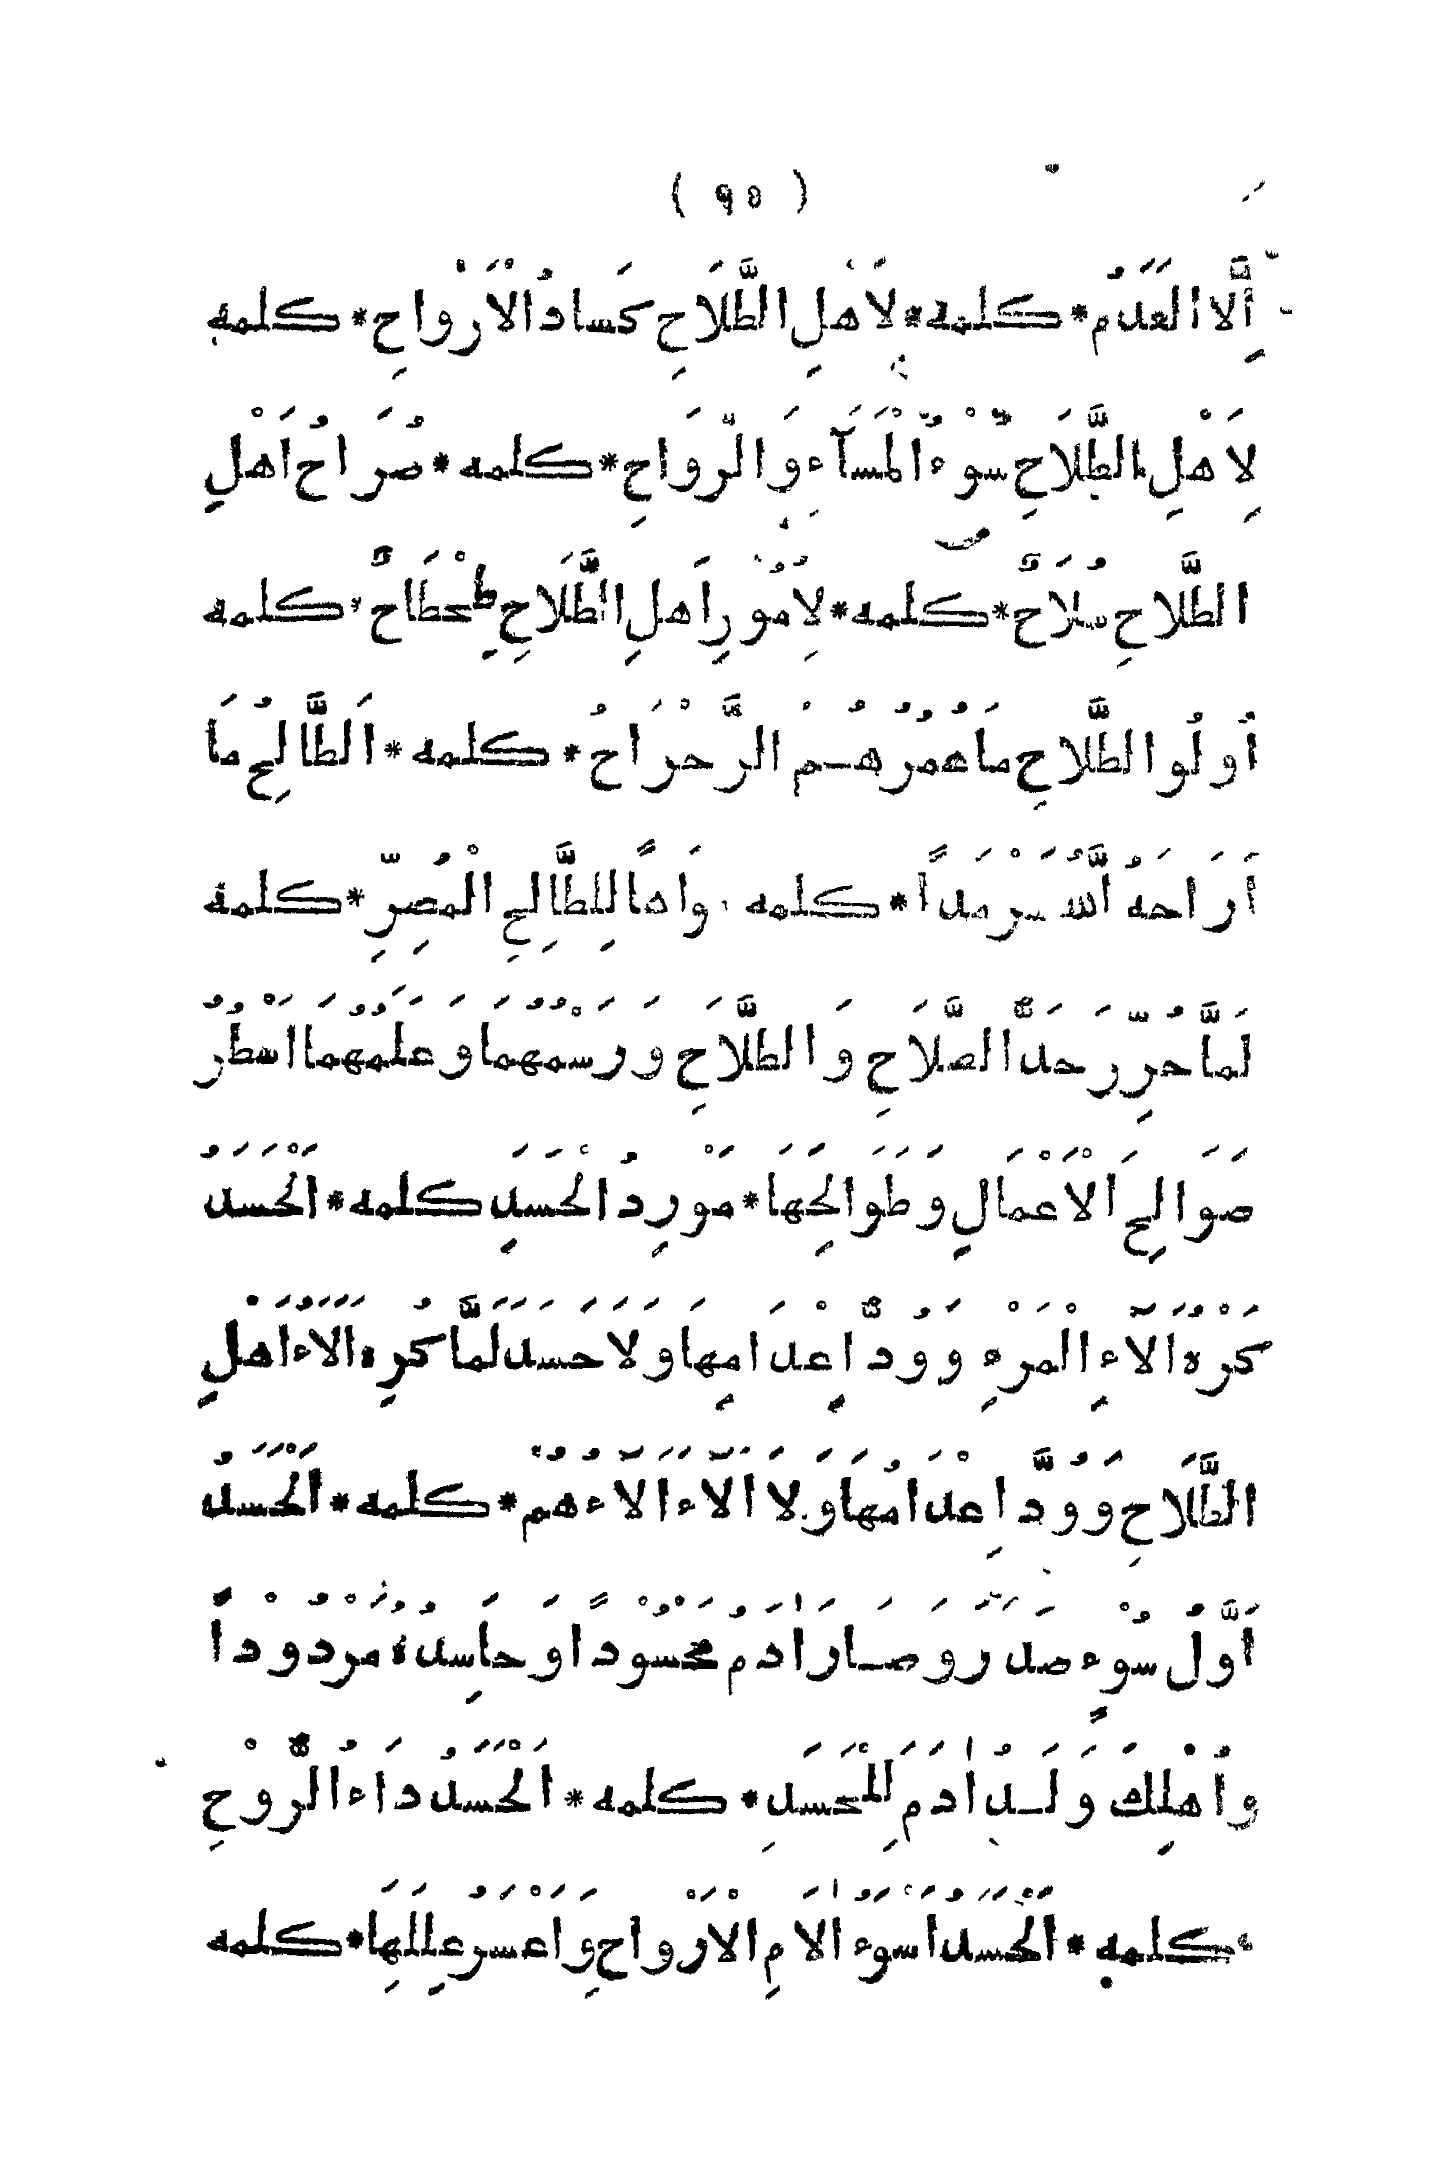 ( ٩٥ )
اِلَّا الْعَدَمُ * كلمه * لِاَهْلِ الطَّلَاحِ كَسادُ الْاَرْوَاحِ * كلمه
لِاَهْلِ الطَّلَاحِ سُوْءُ الْمَسَآءِ وَ الرَّوَاحِ * كلمه * صُرَاحُ اَهْلِ
الطَّلاحِ سُلَاحٌ * كلمه * لِاُمُوْرِ اَهْلِ الطَّلَاحِ طِحْطَاحٌ * كلمه
اُولُو الطَّلَاحِ مَا عُمُرُهُمْ الرَّحْرَاحُ * كلمه * اَلطَّالِحُ مَا
اَرَاحَهُ اللّٰهُ سَرْمَداً * كلمه * وَاهاً لِلطَّالِحِ الْمُصِرِّ * كلمة
لَمَّا حُرِّرَ حَدُّ الصَّلَاحِ وَ الطَّلَاحِ وَ رَسْمُهُمَا وَ عَلَمُهُمَا اَسْطُرُ
صَوَالِحَ الْاَعْمَالِ وَ طَوَالِحَهَا * مَوْرِدُ الْحَسَدِ كلمه * اَلْحَسَدُ
كَرْهُ اٰلَآءِ الْمَرْءِ وَ وُدُّ اِعْدَامِهَا وَ لَا حَسَدَ لَمَّا كُرِهَ اٰلَاءُ اَهْلِ
الطَّلَاحِ وَ وُدَّ اِعْدَامُهَا وَ لَا اٰلَآءَ اٰلَآءُهُمْ * كلمه * اَلْحَسَدُ
اَوَّلُ سُوْءٍ صَدَرَ وَ صَارَ اٰدَمُ مَحْسُوْداً وَ حَاسِدُهُ مَرْدُوْداً
وَ اُهْلِكَ وَلَدُ اٰدَمَ لِلْحَسَدِ * كلمه * اَلْحَسَدُ دَاءُ الرُّوْحِ
* كلمه * اَلْحَسَدُ اَسْوَءُ اٰلَامِ الْاَرْوَاحِ وَ اَعْسَرُ عِلَلِهَا * كلمه